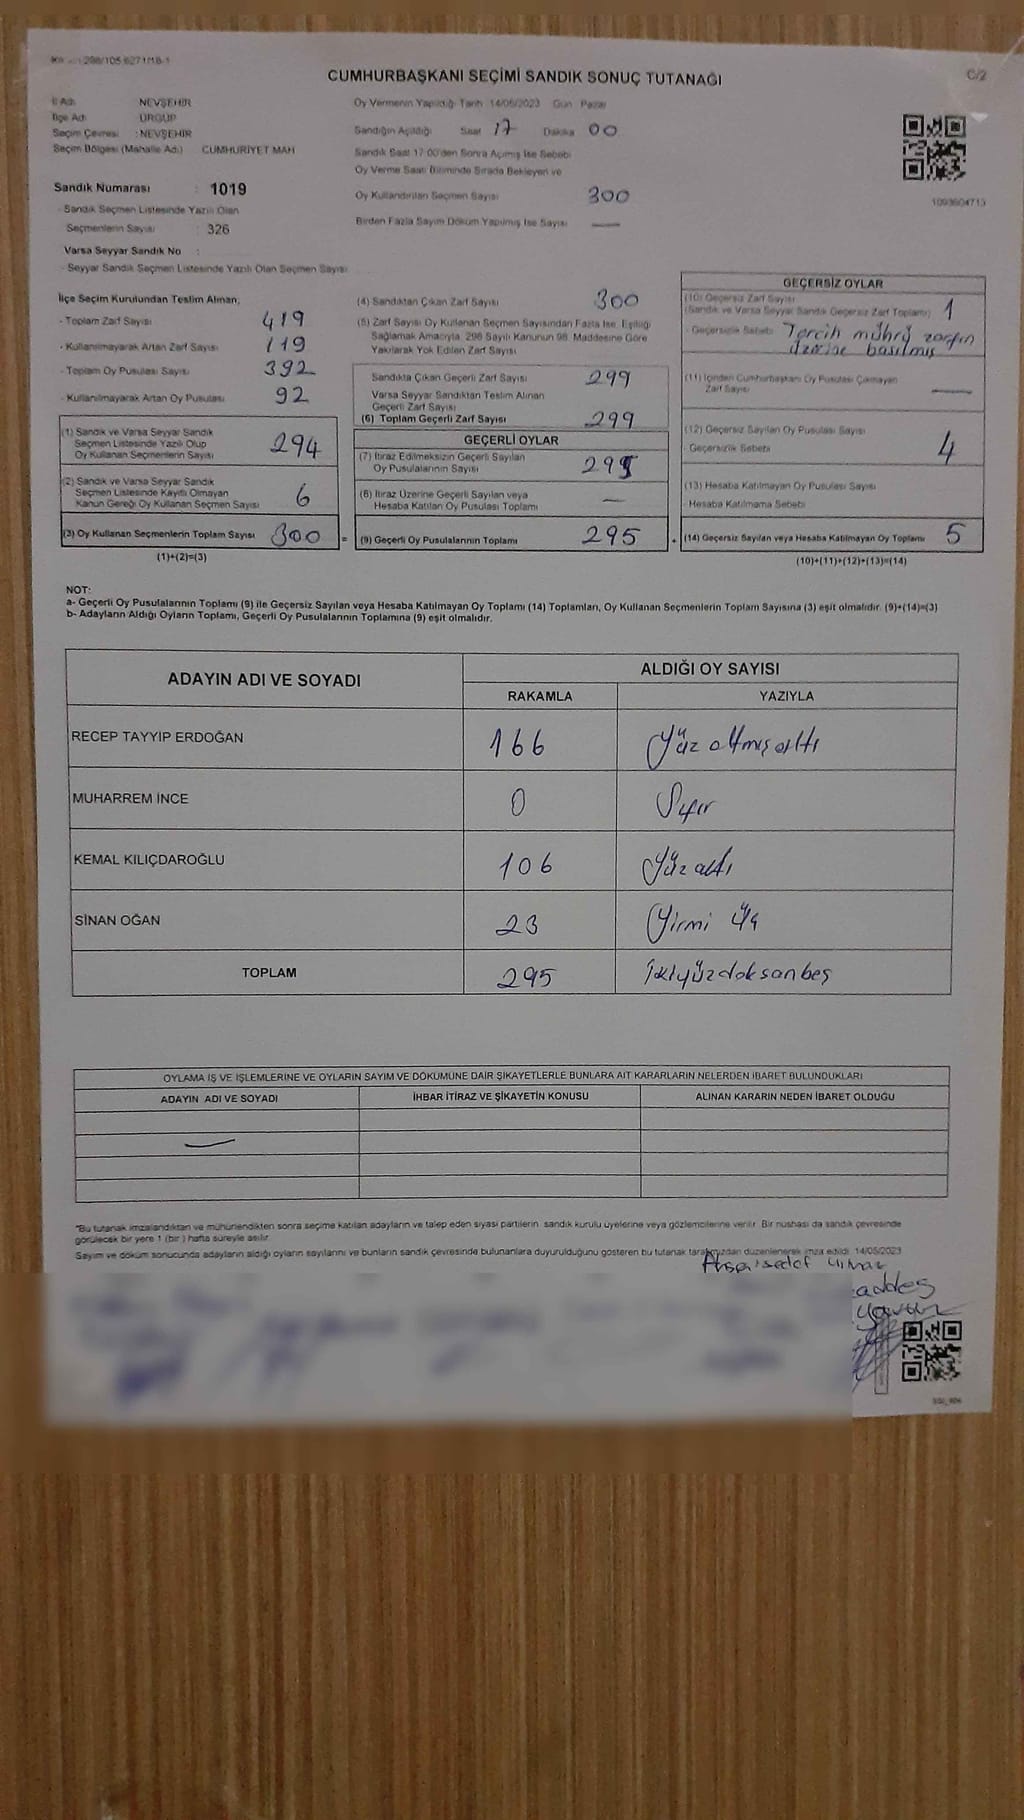 CUMHURBAŞKANI SEÇİMİ SANDIK SONUÇ TUTANAĞI
C/2
İl Adı NEVŞEHİR
İlçe Adı ÜRGÜP
Seçim Çevresi : NEVŞEHİR
Seçim Bölgesi (Mahalle Adı) CUMHURİYET MAH
Sandık Numarası : 1019
- Sandık Seçmen Listesinde Yazılı Olan
Seçmenlerin Sayısı : 326
Varsa Seyyar Sandık No :
- Seyyar Sandık Seçmen Listesinde Yazılı Olan Seçmen Sayısı
Oy Vermenin Yapıldığı Tarih 14/05/2023 Gün Pazar
Sandığın Açıldığı Saat 17 Dakika 00
Sandık Saat 17:00'den Sonra Açılmış İse Sebebi
Oy Verme Saati Bitiminde Sırada Bekleyen ve
Oy Kullandırılan Seçmen Sayısı 300
Birden Fazla Sayım Döküm Yapılmış İse Sayısı —
1093604713
İlçe Seçim Kurulundan Teslim Alınan;
- Toplam Zarf Sayısı 419
- Kullanılmayarak Artan Zarf Sayısı 119
- Toplam Oy Pusulası Sayısı 392
- Kullanılmayarak Artan Oy Pusulası 92
(1) Sandık ve Varsa Seyyar Sandık
Seçmen Listesinde Yazılı Olup
Oy Kullanan Seçmenlerin Sayısı 294
(2) Sandık ve Varsa Seyyar Sandık
Seçmen Listesinde Kayıtlı Olmayan
Kanun Gereği Oy Kullanan Seçmen Sayısı 6
(3) Oy Kullanan Seçmenlerin Toplam Sayısı 300 =
(1)+(2)=(3)
(4) Sandıktan Çıkan Zarf Sayısı 300
(5) Zarf Sayısı Oy Kullanan Seçmen Sayısından Fazla İse, Eşitliği
Sağlamak Amacıyla, 298 Sayılı Kanunun 98. Maddesine Göre
Yakılarak Yok Edilen Zarf Sayısı
Sandıkta Çıkan Geçerli Zarf Sayısı 299
Varsa Seyyar Sandıktan Teslim Alınan
Geçerli Zarf Sayısı
(6) Toplam Geçerli Zarf Sayısı 299
GEÇERLİ OYLAR
(7) İtiraz Edilmeksizin Geçerli Sayılan
Oy Pusulalarının Sayısı 295
(8) İtiraz Üzerine Geçerli Sayılan veya
Hesaba Katılan Oy Pusulası Toplamı —
(9) Geçerli Oy Pusulalarının Toplamı 295 +
GEÇERSİZ OYLAR
(10) Geçersiz Zarf Sayısı
(Sandık ve Varsa Seyyar Sandık Geçersiz Zarf Toplamı) 1
- Geçersizlik Sebebi Tercih mührü zarfın
üzerine basılmış
(11) İçinden Cumhurbaşkanı Oy Pusulası Çıkmayan
Zarf Sayısı —
(12) Geçersiz Sayılan Oy Pusulası Sayısı
- Geçersizlik Sebebi 4
(13) Hesaba Katılmayan Oy Pusulası Sayısı
- Hesaba Katılmama Sebebi
(14) Geçersiz Sayılan veya Hesaba Katılmayan Oy Toplamı 5
(10)+(11)+(12)+(13)=(14)
NOT:
a- Geçerli Oy Pusulalarının Toplamı (9) ile Geçersiz Sayılan veya Hesaba Katılmayan Oy Toplamı (14) Toplamları, Oy Kullanan Seçmenlerin Toplam Sayısına (3) eşit olmalıdır. (9)+(14)=(3)
b- Adayların Aldığı Oyların Toplamı, Geçerli Oy Pusulalarının Toplamına (9) eşit olmalıdır.
ADAYIN ADI VE SOYADI ALDIĞI OY SAYISI
RAKAMLA YAZIYLA
RECEP TAYYİP ERDOĞAN 166 Yüz altmış altı
MUHARREM İNCE 0 Sıfır
KEMAL KILIÇDAROĞLU 106 Yüz altı
SİNAN OĞAN 23 Yirmi üç
TOPLAM 295 İkiyüzdoksanbeş
OYLAMA İŞ VE İŞLEMLERİNE VE OYLARIN SAYIM VE DÖKÜMÜNE DAİR ŞİKAYETLERLE BUNLARA AİT KARARLARIN NELERDEN İBARET BULUNDUKLARI
ADAYIN ADI VE SOYADI İHBAR İTİRAZ VE ŞİKAYETİN KONUSU ALINAN KARARIN NEDEN İBARET OLDUĞU
—
*Bu tutanak imzalandıktan ve mühürlendikten sonra seçime katılan adayların ve talep eden siyasi partilerin sandık kurulu üyelerine veya gözlemcilerine verilir. Bir nüshası da sandık çevresinde
görülecek bir yere 1 (bir) hafta süreyle asılır.
Sayım ve döküm sonucunda adayların aldığı oyların sayılarını ve bunların sandık çevresinde bulunanlara duyurulduğunu gösteren bu tutanak tarafımızdan düzenlenerek imza edildi. 14/05/2023